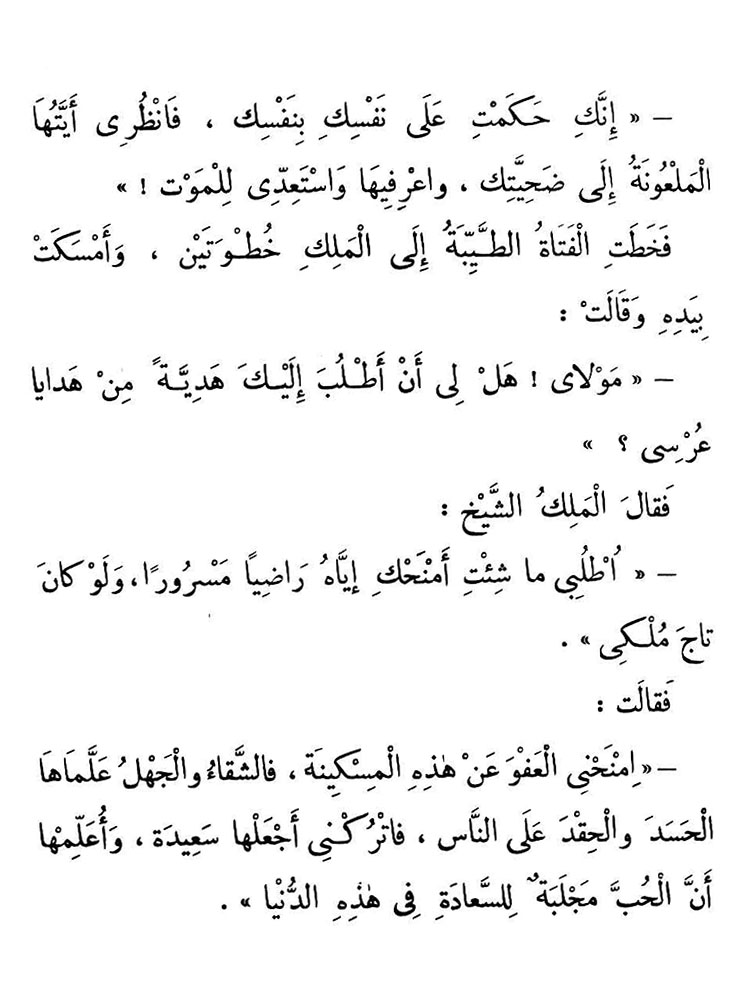 — « إِنَّكِ حَكَمْتِ عَلَى نَفْسِكِ بِنَفْسِك ، فَانْظُرِى أَيَّتُهَا
الْمَلْعُونَةُ إِلَى ضَحِيَّتِك ، واعْرِفِيهَا وَاسْتَعِدِّى لِلْمَوْت ! »
فَخَطَتِ الْفَتَاةُ الطَّيِّبَةُ إِلَى الْمَلِكِ خُطْوَتَيْن ، وَأَمْسَكَتْ
بِيَدِهِ وَقَالَتْ :
— « مَوْلاى ! هَلْ لِى أَنْ أَطْلُبَ إِلَيْكَ هَدِيَّةً مِنْ هَدايا
عُرْسِى ؟ »
فَقالَ الْمَلِكُ الشَّيْخ :
— « اُطْلُبِى ما شِئْتِ أَمْنَحْكِ إيَّاهُ رَاضِياً مَسْرُورًا ، وَلَوْ كانَ
تاجَ مُلْكِى » .
فَقالَت :
— « اِمْنَحْنِى الْعَفْوَ عَنْ هٰذِهِ الْمِسْكِينَة ، فالشَّقاءُ والْجَهْلُ عَلَّمَاهَا
الْحَسَدَ والْحِقْدَ عَلَى النَّاس ، فاتْرُكْنِى أَجْعَلْها سَعِيدَة ، وَأُعَلِّمْها
أَنَّ الْحُبَّ مَجْلَبَةٌ لِلسَّعادَةِ فِى هٰذِهِ الدُّنْيا » .